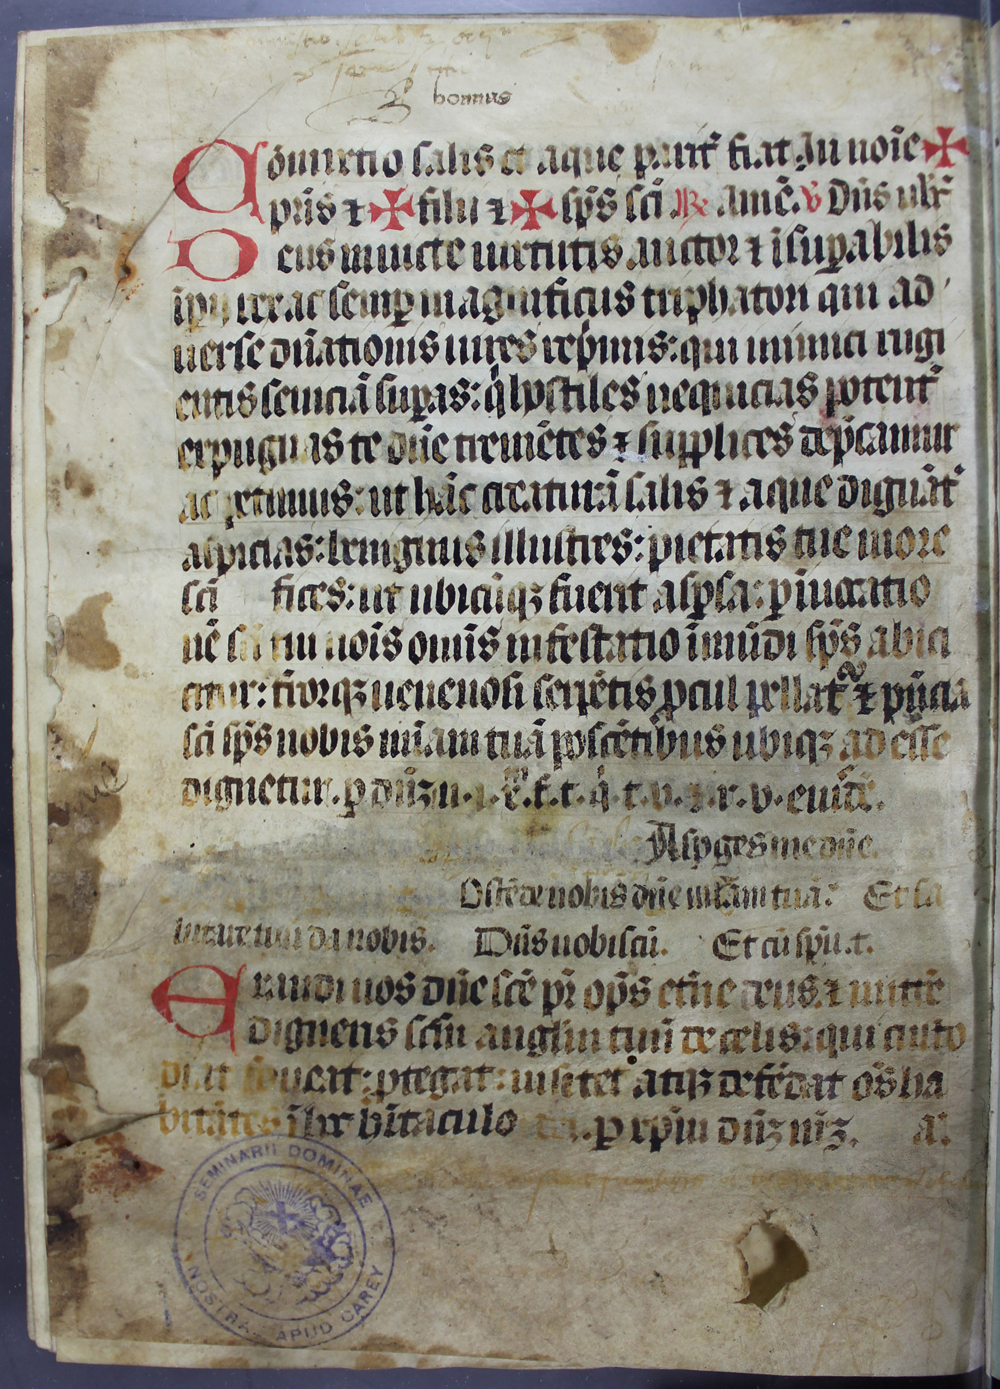 bonnus
Cōmixtio salis et aque parit̄ fiat. In noīe ✠
pr̄is ⁊ ✠ filii ⁊ ✠ sp̄s sc̄i ℟ Amē. ℣ Dn̄s
Deus inuicte uirtutis auctor ⁊ īsuꝑabilis
īperii rex ac semꝑ magnificus triphator: qui ad
uerse dn̄ationis uires rep̄mis: qui inimici rugi
entis seuiciā suꝑas: q̇ hostiles nequicias potent̄
expugnas te dn̄e tremētes ⁊ supplices dep̄camur
ac petimus: ut hāc creaturā salis ⁊ aque dignāt̄
aspicias: benignus illustres: pietatis tue more
sc̄i fices: ut ubicūqꝫ fuerit aspsa: ꝑ inuocatio
nē sc̄i tui nōis omīs infestatio īmūdi sp̄s abici
atur: t̄rorqꝫ uenenosi serpētis ꝓcul pellat̄ ⁊ pn̄cia
sc̄i sp̄s nobis mīam tuā poscētibus ubiqꝫ ad esse
dignetur. ꝑ dn̄ꝫ n. i. x. f. t. q. t. v. ⁊. r. v. eiusdē.
Aspges me dn̄e.
Ostēde nobis dn̄e mīam tuā. Et sa
lutare tuū da nobis. Dn̄s uobiscū. Et cū spū. t.
Exaudi nos dn̄e sc̄e pr̄ op̄s et̄ne deus. ⁊ mitte
digneris sc̄m anglm tuū de celis: qui custo
diat foueat: ꝓtegat: uisitet atqꝫ defēdat oēs ha
bitātes ī hoc hītaculo ꝑ xp̄m dn̄ꝫ nr̄ꝫ. a.
SEMINARII DOMINAE
NOSTRAE APUD CAREY